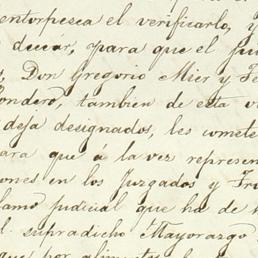 entorpesca el verificarlo, y
decir, para que el Jui
Don Gregorio Mier y Te
Rondero, tambien de esta v
deja designados, les comete
ara que á la vez represen
iones en los Juzgados y Tri
lamo judicial que ha de
l supradicho Mayorazgo
que por alimentos le